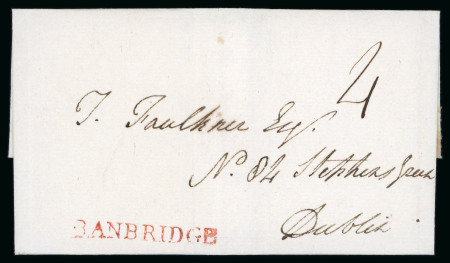 4
T. Faulkner Esqr.
No. 84 Stephens Green
Dublin
BANBRIDGE